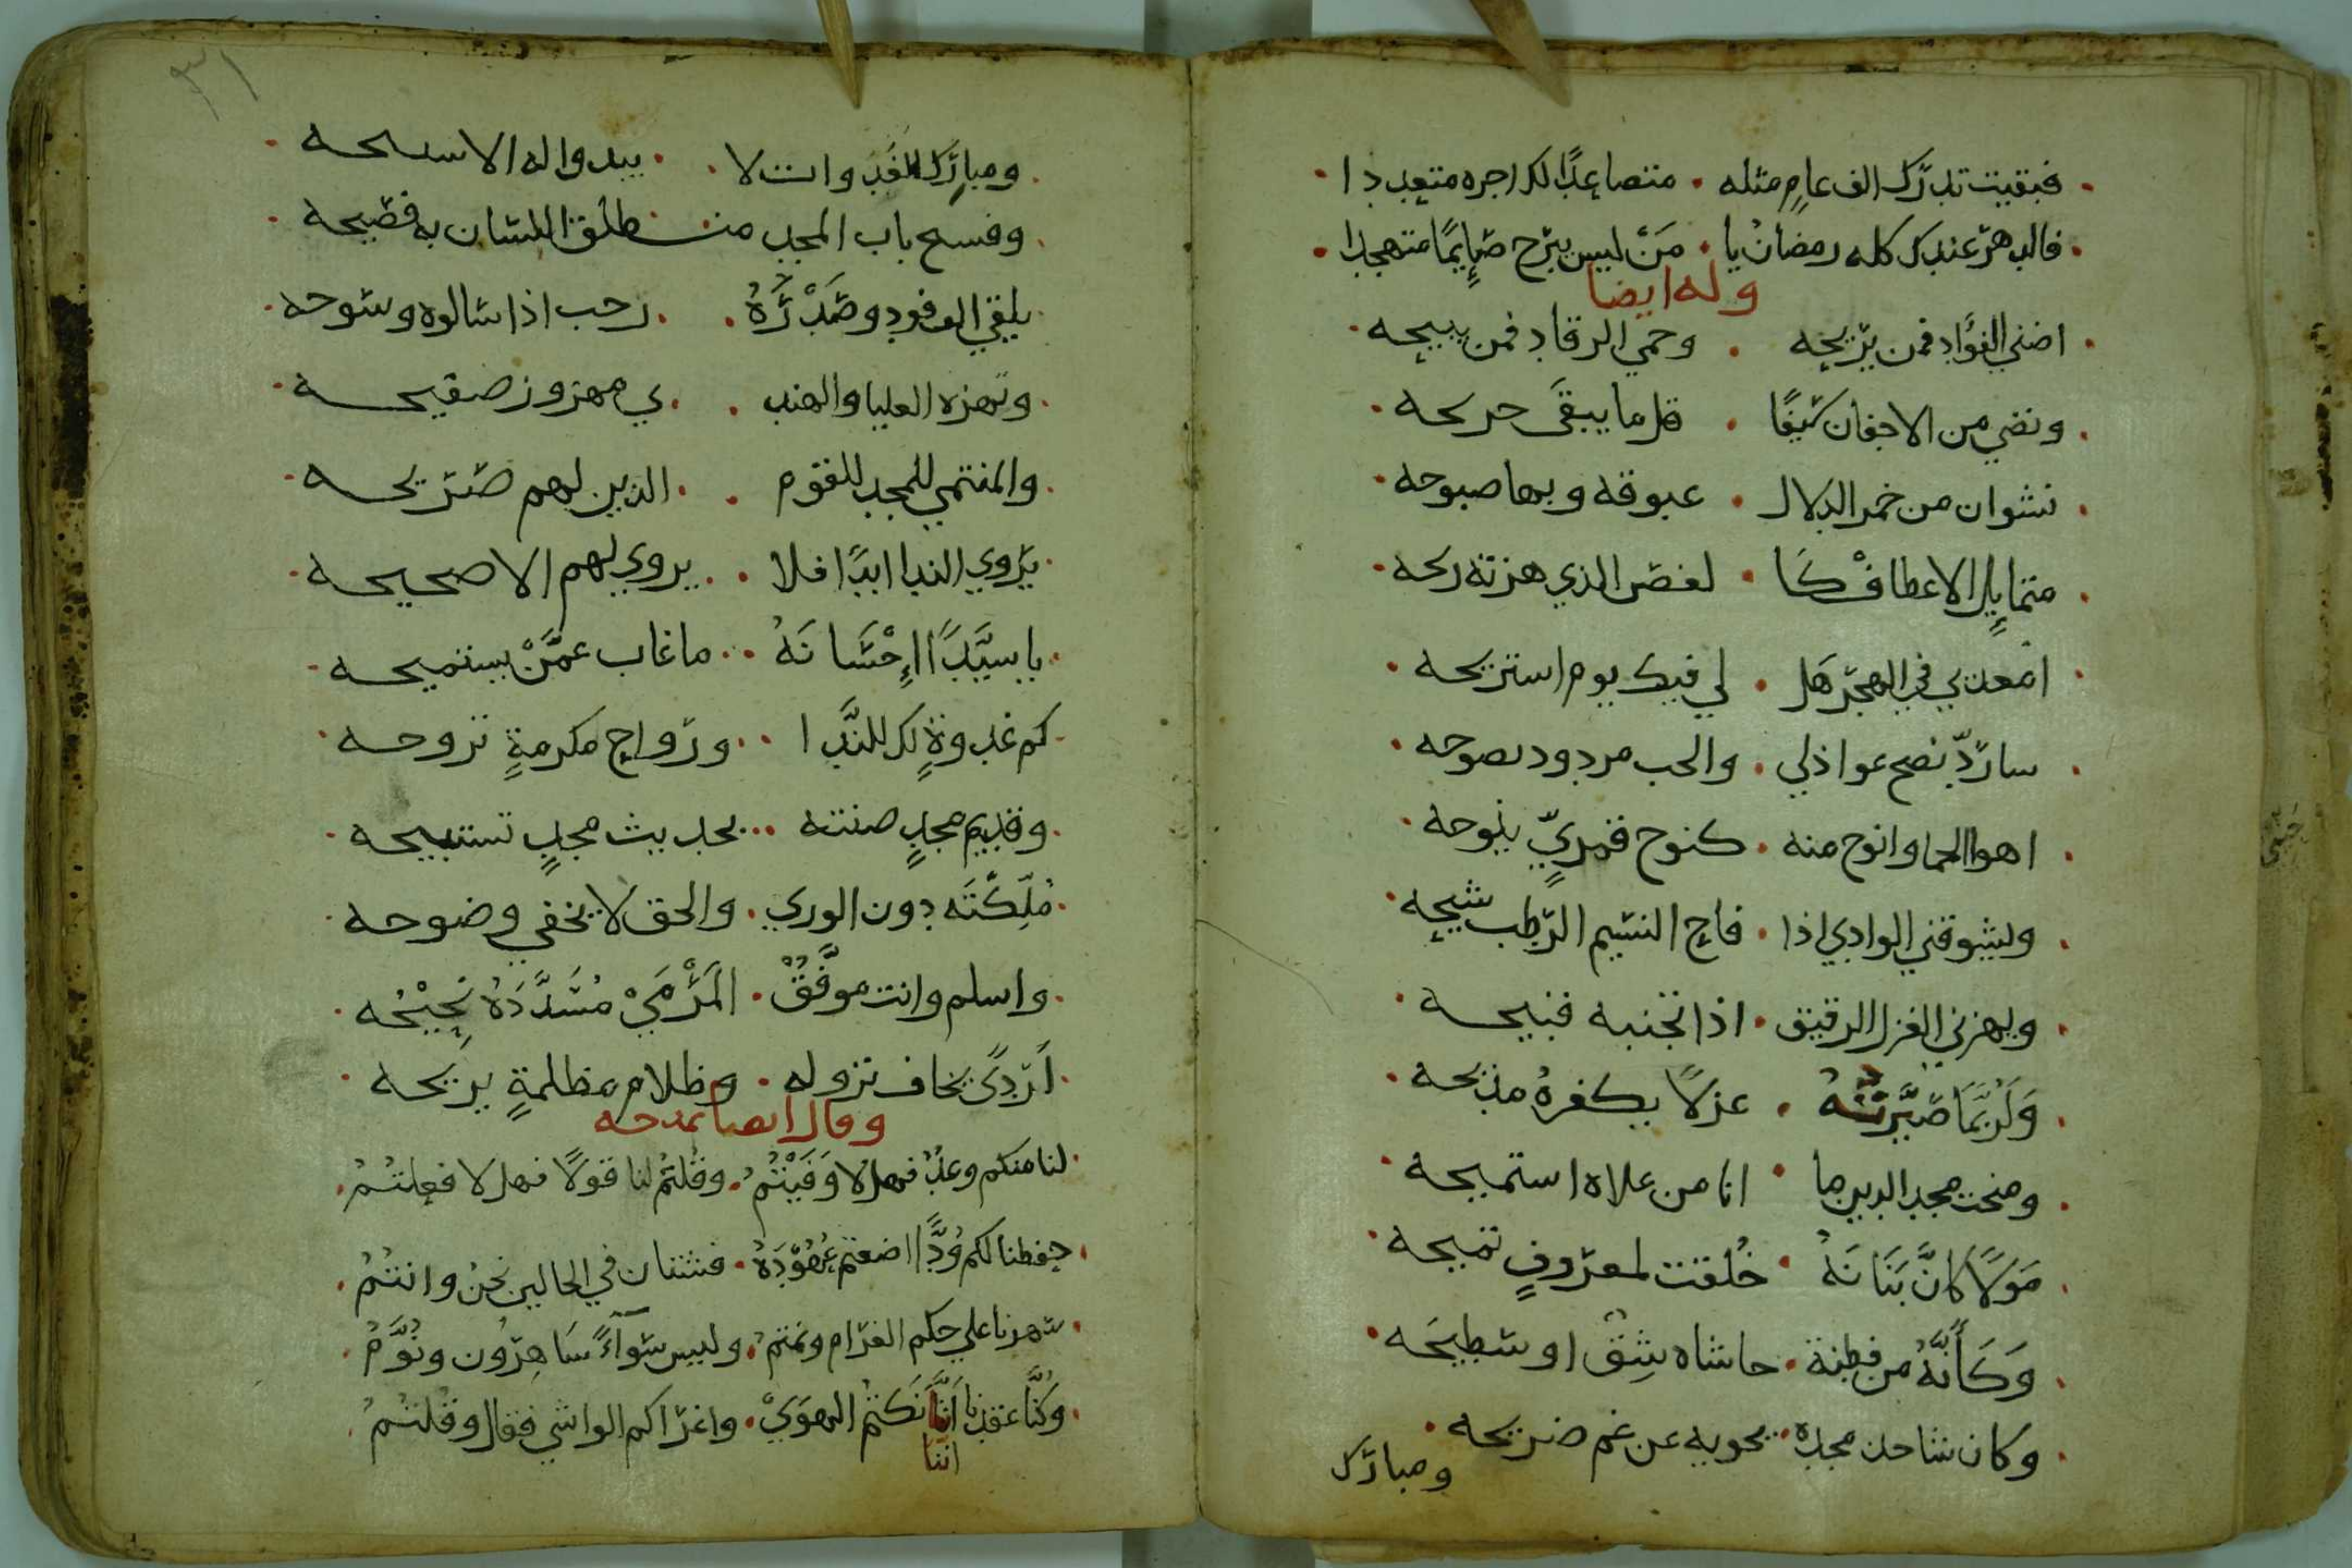 فبقيت تدرك الف عامٍ مثله . متصاعدًا لك اجره متعددا
فالدهر عندك كله رمضانُ يا . مَنْ ليس يبرح صايمًا متهجدا
وله ايضا
اضني الفؤاد فمن يريحه . وحمي الرقاد فمن يبيحه
ونضي من الاجفان سَيفًا . قل ما يبقَى جريحه
نشوان من خمر الدلال . غبوقه وبها صبوحه
متمايل الاعطافْ كَا . لغصن الذي هزته ريحه
امعذبي في الهجر هَل . لي فيك يوم استريحه
ساردّ نصح عواذلي . والحب مردود نصوحه
اهوا الحما وانوح منه . كنوح قمريٍّ ينوحه
ويشوقني الوادي اذا . فاح النسيم الرطب شيحه
ويهزني الغزل الرقيق . اذا تجنبه قبيحه
وَلَرُبَّمَا صَيَّرتُهُ . غزلاً يكفرهُ مديحه
ومنحت مجد الدين ما . انا من علاه استميحه
مَوَلاً كانَّ بَنَانَهُ . خُلقت لمعروفٍ تميحه
وَكَأَنَّهُ من فطنة . حاشاه شِقٌ او سَطيحَه
وكان شاحن مجده . يحويه عن غم ضريحه
ومبارك
٣١
ومبارك الغَدَوات لا . يبدو اله الا سنيحه
وفسيح باب المجد منـ . ـطلق اللسان به فصيحه
يلقي الوفود وصَدْرُهُ . رحب اذا سالوه وسوحه
وتهزه العليا والهند . ي مهزوز صفيحه
والمنتمي للمجد للقوم . الذين لهم صريحه
يروي الندا ابدًا فلا . يروي لهم الا صحيحه
يا سيّدًا إِحْسَانَهُ . ما غاب عمَّنْ يستميحه
كم غدوةٍ لك للنَّدا . ورواحِ مكرمةٍ تروحه
وقديم مجدٍ صنته . بحديث مجدٍ تستبيحه
مُلّكْتَه دون الوري . والحق لا يخفي وضوحه
واسلم وانت موفَّقُ . المَرْمَيْ مُسَدَّدَهُ نَجِيْحُه
لَرَدىً يخاف نزوله . وظلام مظلمةٍ يزيحه
وقال ايضا يمدحه
لنا منكم وعدٌ فهلا وَفَيْتُمُ . وقلتمُ لنا قولاً فهلا فعلتُمُ
حفظنا لكم وُدًّا اضعتم عُهُوْدَهُ . فشتان في الحالين نحنُ وانتُمُ
سهرنا علي حكم الغرام ونمتمُ . وليس سَوآءً سَاهِرُون ونُوَّمُ
وَكُنَّا عقدنا أنَّنَا نَكتمُ الهوَيْ . واغراكم الواشي فقال وقلتُمُ
اننا